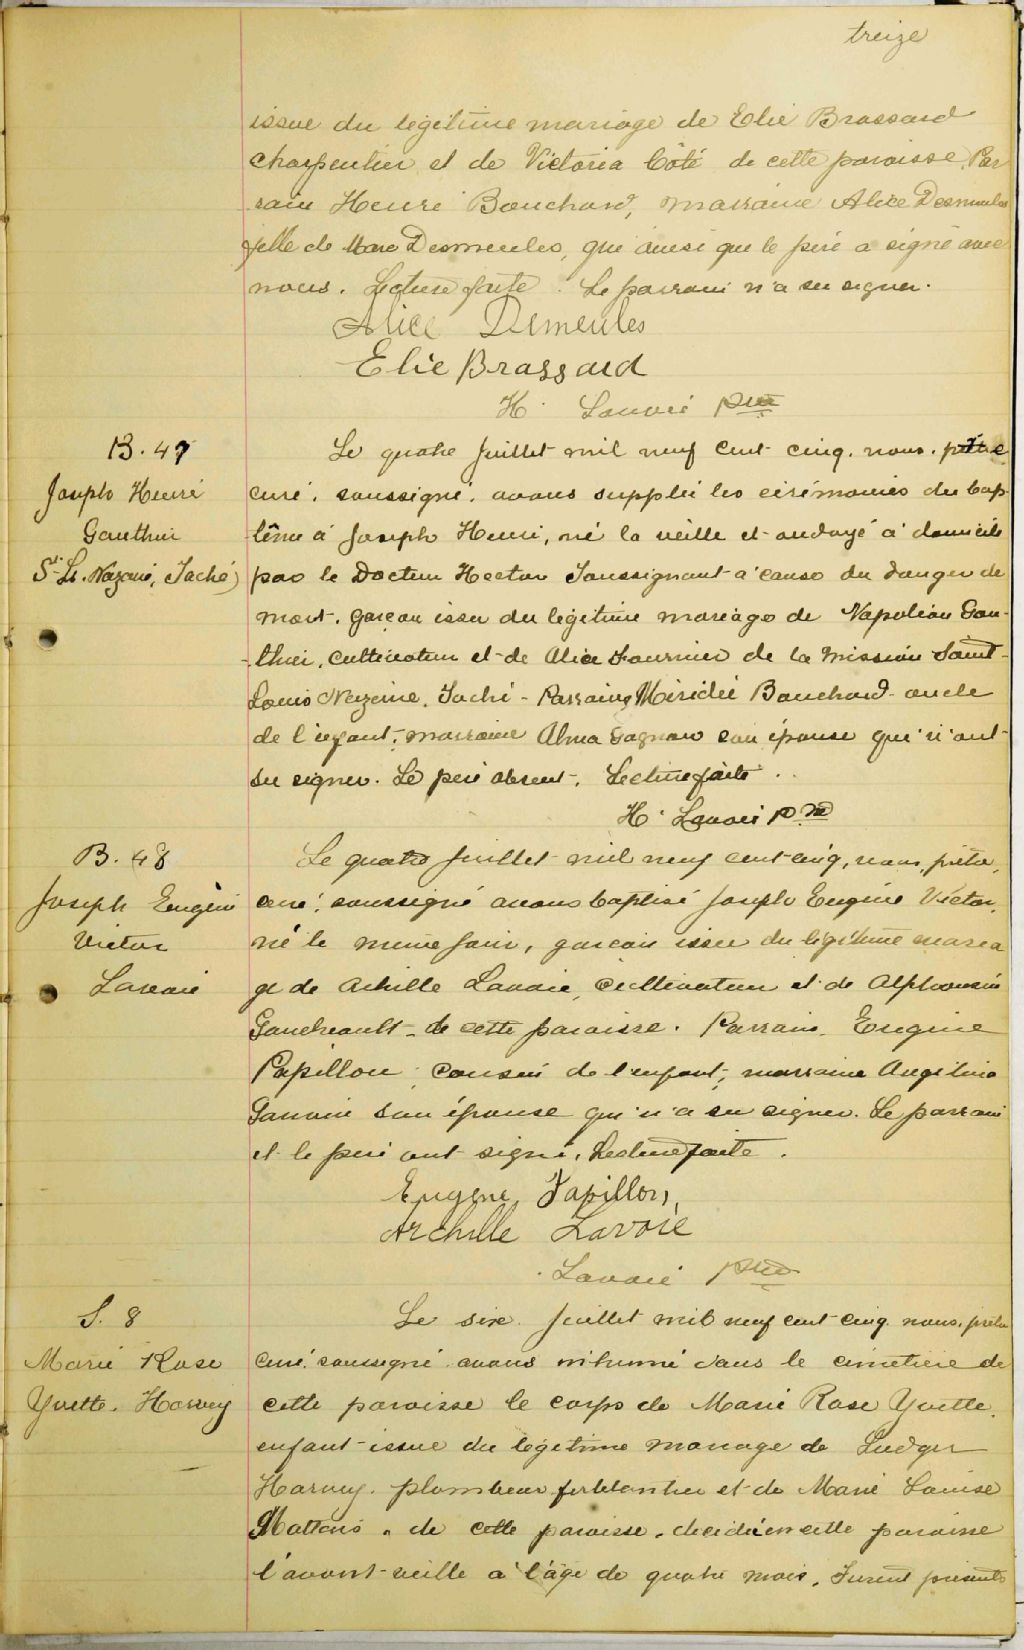 treize
issue du légitime mariage de Elie Brassard
charpentier et de Victoria Côté de cette paroisse. Par
rain Henri Bouchard, marraine Alice Desmeules
fille de Marc Desmeules, qui ainsi que le père a signé avec
nous. Lecture faite. Le parrain n'a su signer.
Alice Demeules
Elie Brassard
H. Lavoie ptre
B. 47
Joseph Henri
Gauthier
St-Ls. Nazaire, Taché)
Le quatre Juillet mil neuf cent cinq. nous. prêtre
curé. soussigné. avons supplée les cérémonies du bap-
tême à Joseph Henri, né la veille et ondoyé à domicile
par le Docteur Hector à cause du danger de
mort. garçon issu du légitime mariage de Napoléon Gau-
-thier, cultivateur et de Alice Fournier de la Mission Saint-
Louis Nazaire. Taché - Parrain, Bouchard oncle
de l'enfant, marraine Alma Gagnon son épouse qui n'ont
su signer. Le père absent. Lecture faite.
H. Lavoie ptre
B. 48
Joseph Eugène
Victor
Lavoie
Le quatre Juillet mil neuf cent cinq, nous, prêtre,
curé, soussigné avons baptisé Joseph Eugène Victor,
né le même jour, garçon issu du légitime maria
ge de Achille Lavoie, cultivateur et de Alphonsine
Gaudreault de cette paroisse. Parrain, Eugène
Papillon, cousin de l'enfant, marraine Angelina
son épouse qui n'a su signer. Le parrain
et le père ont signé. Lecture faite.
Eugène Papillon,
Archille Lavoie
Lavoie ptre
S. 8
Marie Rose
Yvette. Harvey
Le six Juillet mil neuf cent cinq. nous. prêtre
curé. soussigné avons inhumé dans le cimetière de
cette paroisse le corps de Marie Rose Yvette.
enfant issue du légitime mariage de Ludger
Harvey. plombeur ferblantier et de Marie Louise
de cette paroisse. décédée en cette paroisse
l'avant-veille à l'âge de quatre mois. Furent présents